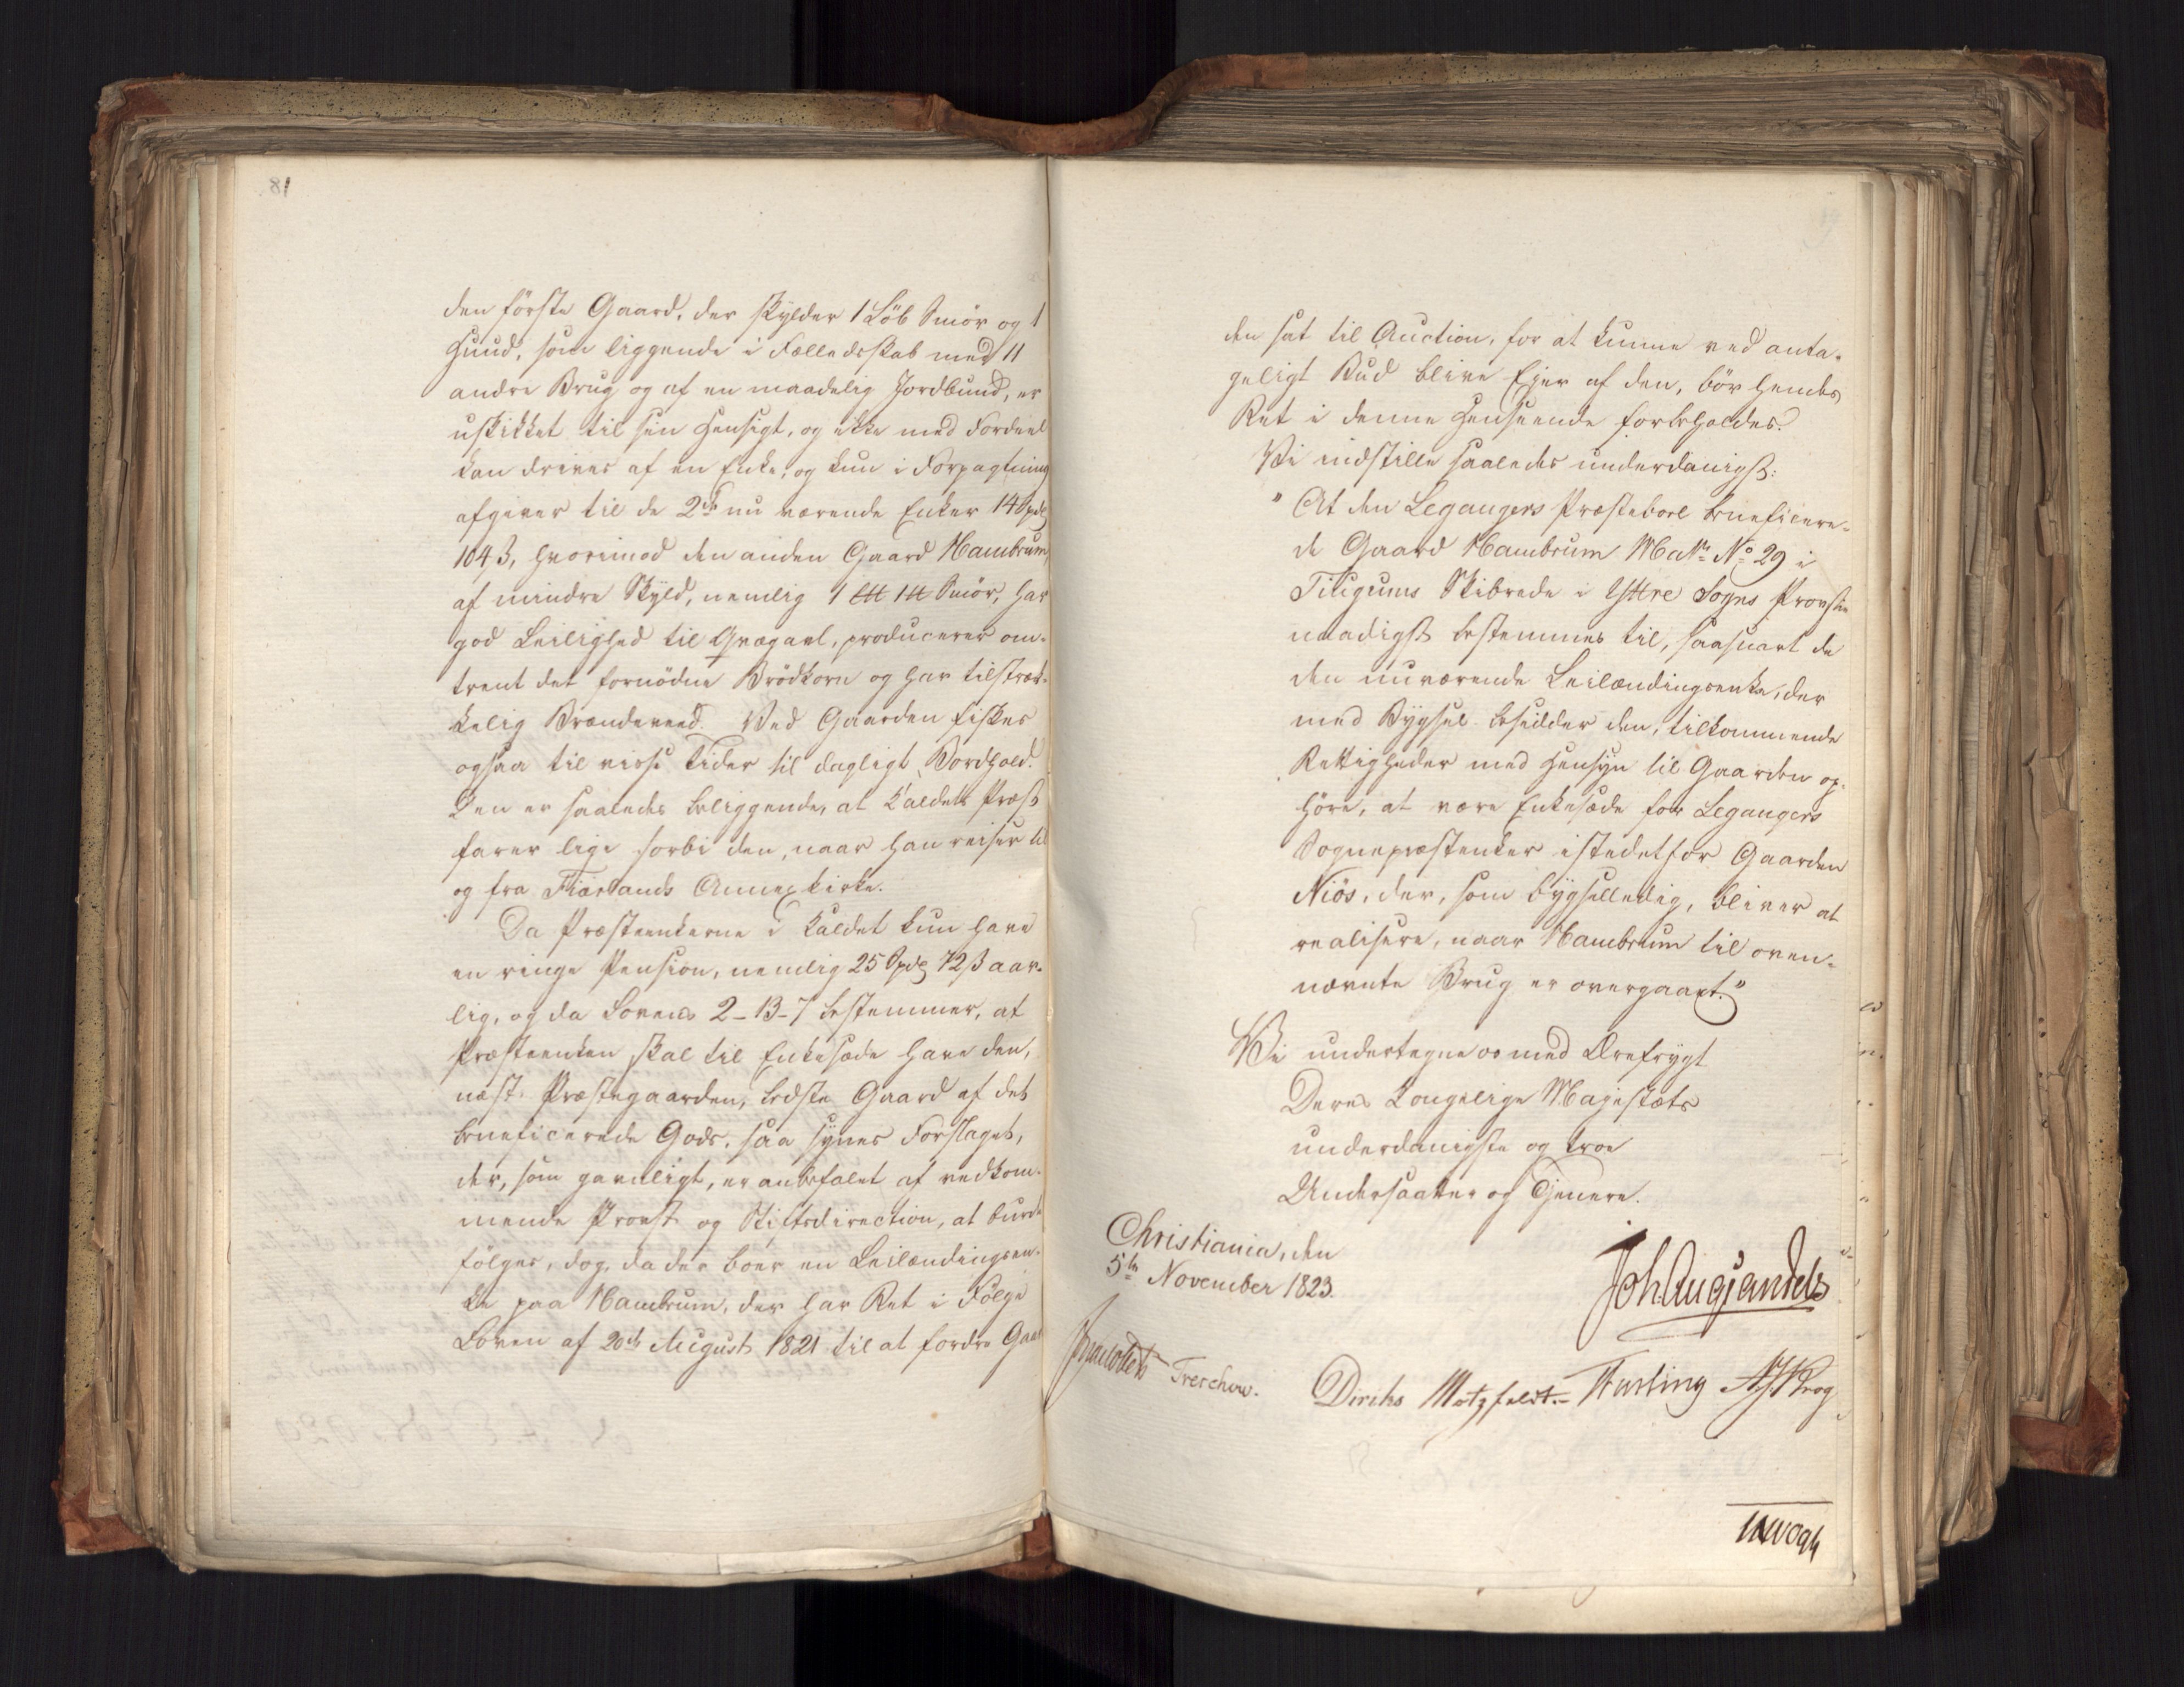 den förste Gaard, der skylder 1 Löb Smör og 1
Huud, som liggende i Fælledsskab med 11
andre Brug og af en maadelig Jordbund, er
uskikket til sin Hensigt, og ikke med Fordeel
kan drives af en Enke, og kun i Forpagtning
afgiver til de 2de nu værende Enker 14 Spd
104 ß, hvorimod den anden Gaard Hambrum,
af mindre Skyld, nemlig 1 Smör, har
god Leilighed til Qvægavl, producerer om-
trent det fornödne Brödkorn og har tilstræk-
kelig Brændeveed. Ved Gaarden fiskes
ogsaa til visse Tider til dagligt Bordhold.
Den er saaledes beliggende, at Kaldets Præst
farer lige forbi den, naar han reiser til
og fra Fiærlands Annexkirke.
Da Præsteenkerne i Kaldet kun have
en ringe Pension, nemlig 25 Spd 72 ß aar-
lig, og da Lovens 2-13-7 bestemmer, at
Præsteenken skal til Enkesæde have den,
næst Præstegaarden, bedste Gaard af det
beneficerede Gods, saa synes Forslaget,
der, som gavnligt, er anbefalet af vedkom-
mende Provst og Stiftsdirection, at burde
fölges, dog, da der boer en Leilændingsen-
ke paa Hambrum, der har Ret i Fölge
Loven af 20de August 1821 til at fordre Gaar
den sat til Auction, for at kunne ved anta-
geligt Bud blive Ejer af den, bör hendes
Ret i denne Henseende forbeholdes.
Vi indstille saaledes underdanigst:
"At den Legangers Præstebord beneficere-
de Gaard Hambrum Matr. No 29 i
Tiugums Skibrede i Yttre Sogns Provstie
naadigst bestemmes til, saasnart de
den nuværende Leilændingsenke, der
med Bygsel besidder den, tilkommende
Rettigheder med Hensyn til Gaarden op-
höre, at være Enkesæde for Legangers
Sognepræstenker istedetfor Gaarden
Niös, der, som bygselledig, bliver at
realisere, naar Hambrum til oven-
nævnte Brug er overgaaet."
Vi undertegne os med Ærefrygt
Deres Kongelige Majestæts
underdanigste og troe
Undersaatter og Tjenere.
Christiania, den
5te November 1823.
Joh Aug Sandels
Treschow. Diriks Motzfeldt. Fasting Krog
Vogt